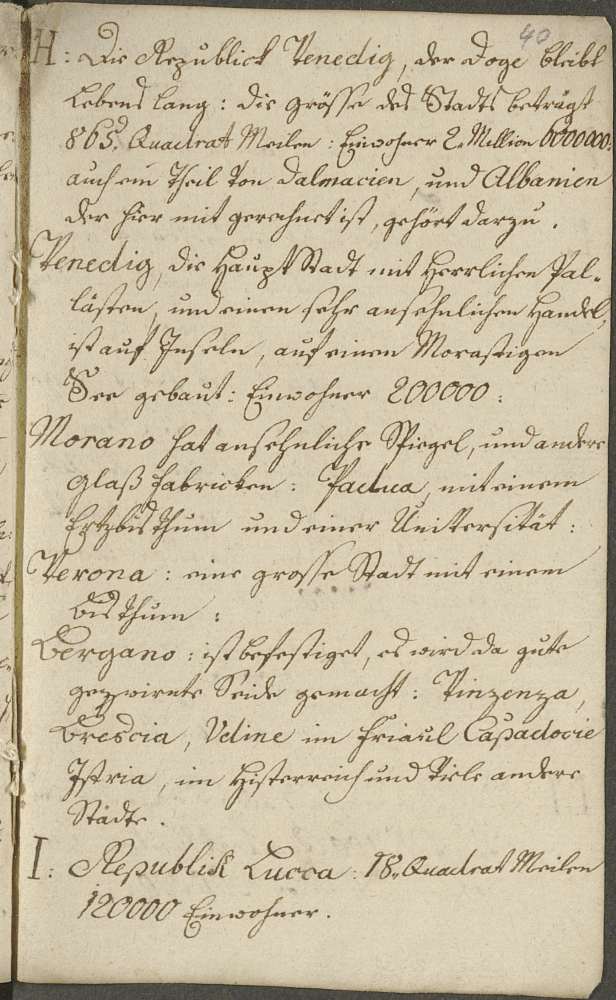 40
H: Die Rezublick Venedig, der Doge bleibt
Lebens lang: die grösse des Stadts beträgt
865. Quadrat Meilen: Einwohner 2. Million
auch ein Theil von Dalmacien, und Albanien
der hier mit gerechnet ist, gehört darzu.
Venedig, die Haupt Stadt mit Herrlichen Pal-
lästen, und einen sehr ansehnlichen Handel,
ist auf Inseln, auf einen Morastigen
See gebaut: Einwohner 200000:
Morano hat ansehnliche Spiegel, und andere
Glaß fabricken: Padua, mit einem
Ertzbisthum und einer Universität:
Verona: eine grosse Stadt mit einem
bisthum:
Bergano: ist befestiget, es wird da gute
gezwirnte Seide gemacht: Vinzenza,
Brescia, Udine im friaul Capadocie
Istria, im Histerreich und Viele andere
Städte.
I: Republik Lucca: 18. Quadrat Meilen
120000 Einwohner.